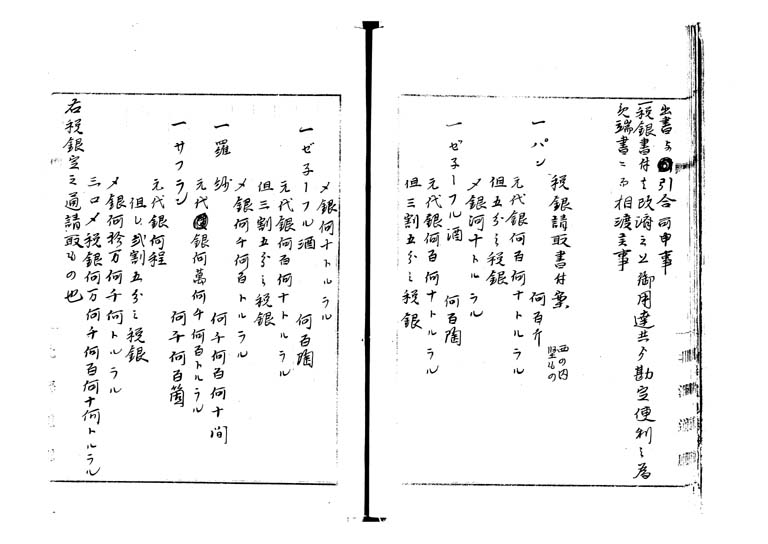 出書与引合可申事
一税銀書付も改済之上御用達共ゟ勘定便利之為
め端書ニ而相渡候事
税銀請取書付案
西の内
竪もの
一パン 何百斤
元代銀何百何十トルラル
但五分之税銀
〆銀何十トルラル
一ゼ子ーフル酒 何百陶
元代銀何百何十トルラル
但三割五分之税銀
〆銀何十トルラル
一ゼ子ーフル酒 何百陶
元代銀何百何十トルラル
但三割五分之税銀
〆銀何千何百トルラル
一羅紗 何千何百何十間
元代銀何萬何千何百トルラル
一サフラン 何千何百箇
元代銀何程
但し弐割五分之税銀
〆銀何拾万何千何トルラル
三口〆税銀何万何千何百何十何トルラル
右税銀定之通請取もの也